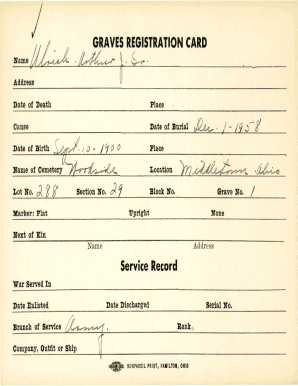 GRAVES REGISTRATION CARD
Name Ulrich Arthur J. Sr.
Address
Date of Death Place
Cause Date of Burial Dec-1-1958
Date of Birth Sept. 10-1900 Place
Name of Cemetery Woodside Location Middletown Ohio
Lot No. 288 Section No. 29 Block No. Grave No. 1
Marker: Flat Upright None
Next of Kin
Name Address
Service Record
War Served In
Date Enlisted Date Discharged Serial No.
Branch of Service Army Rank
Company, Outfit or Ship
NONPAREIL PRINT, HAMILTON, OHIO